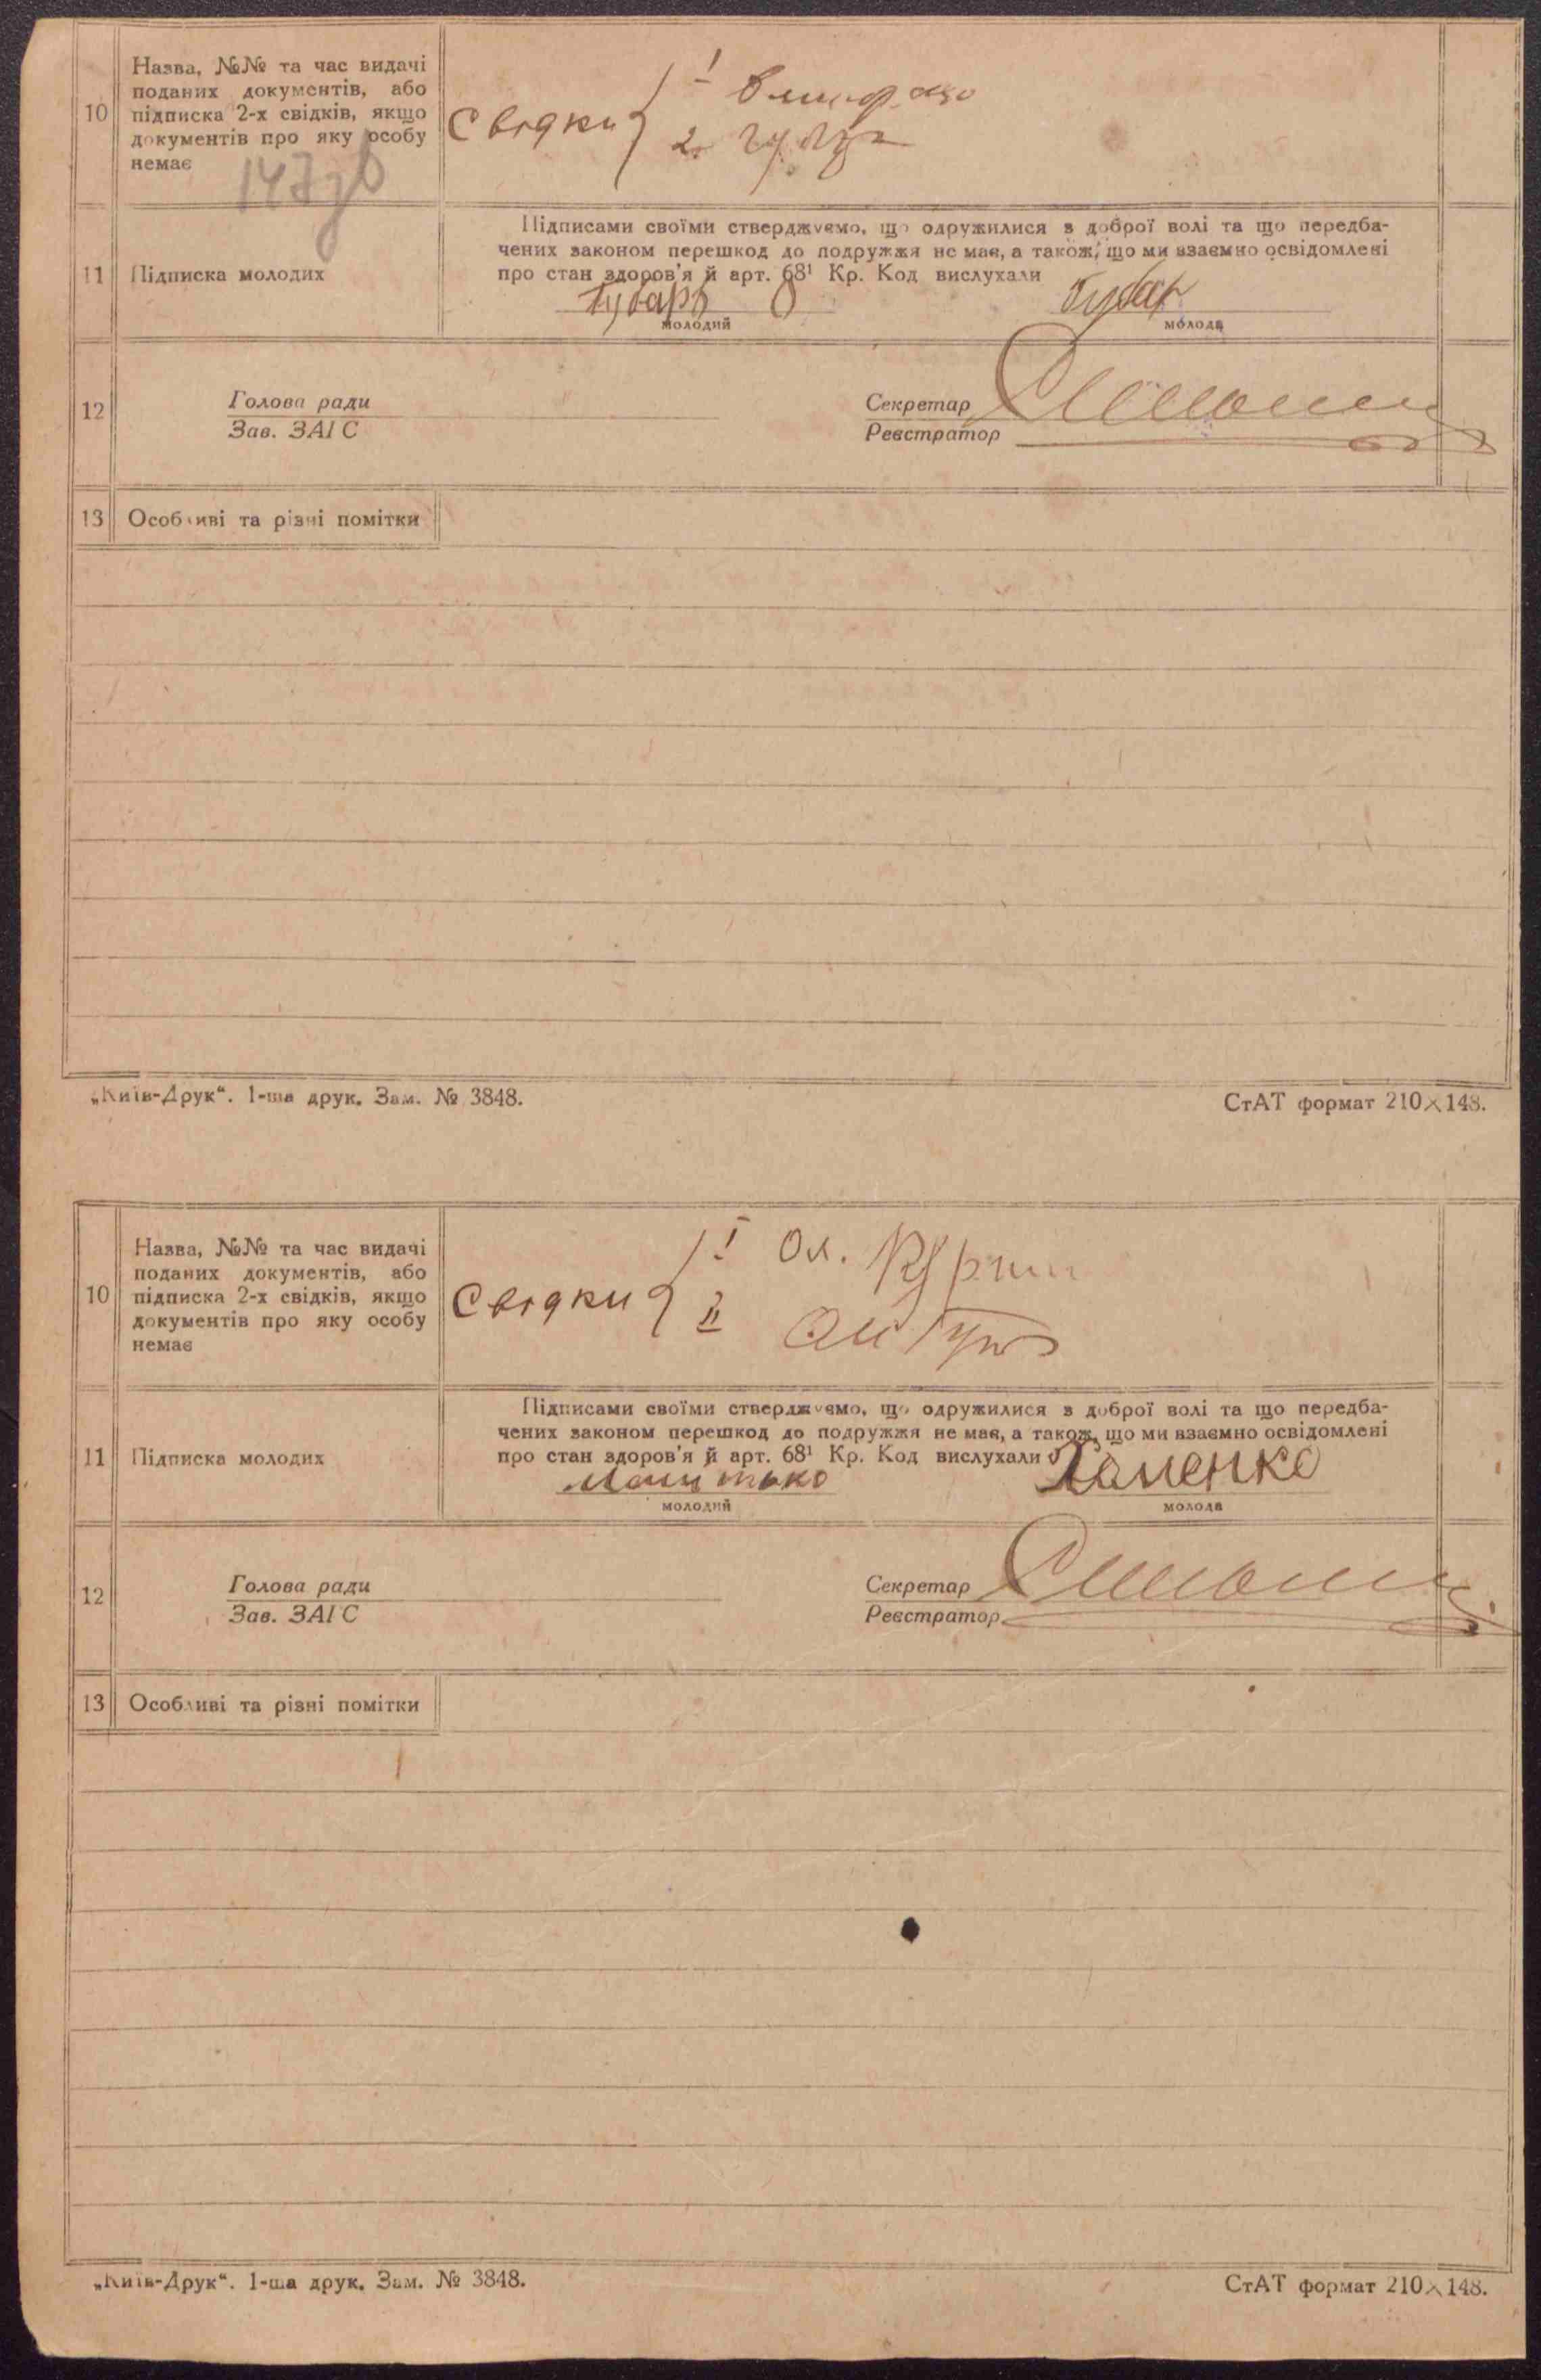 10
Назва, №№ та час видачі
поданих документів, або
підписка 2-х свідків, якщо
документів про яку особу
немає
147зв
Свідки
1
2.
11
Підписка молодих
Підписами своїми стверджуємо, що одружилися з доброї волі та що передба-
чених законом перешкод до подружжя не має, а також, що ми взаємно освідомлені
про стан здоров'я й арт. 68¹ Кр. Код вислухали
Губарь
Губар
молодий
молода
12
Голова ради
Зав. ЗАГС
Секретар
Реєстратор
13
Особливі та різні помітки
„Київ-Друк“. 1-ша друк. Зам. № 3848.
СтАТ формат 210×148.
10
Назва, №№ та час видачі
поданих документів, або
підписка 2-х свідків, якщо
документів про яку особу
немає
Свідки
I Ол.
II
11
Підписка молодих
Підписами своїми стверджуємо, що одружилися з доброї волі та що передба-
чених законом перешкод до подружжя не має, а також, що ми взаємно освідомлені
про стан здоров'я й арт. 68¹ Кр. Код вислухали
Хоменко
молодий
молода
12
Голова ради
Зав. ЗАГС
Секретар
Реєстратор
13
Особливі та різні помітки
„Київ-Друк“. 1-ша друк. Зам. № 3848.
СтАТ формат 210×148.